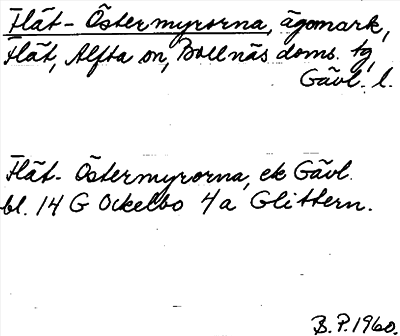 Flät-Östermyrorna, ägomark,
Flät, Alfta sn, Bollnäs doms. tg,
Gävl. l.
Flät-Östermyrorna, ek Gävl.
bl. 14 G Ockelbo 4a Glittern.
B.P. 1960.